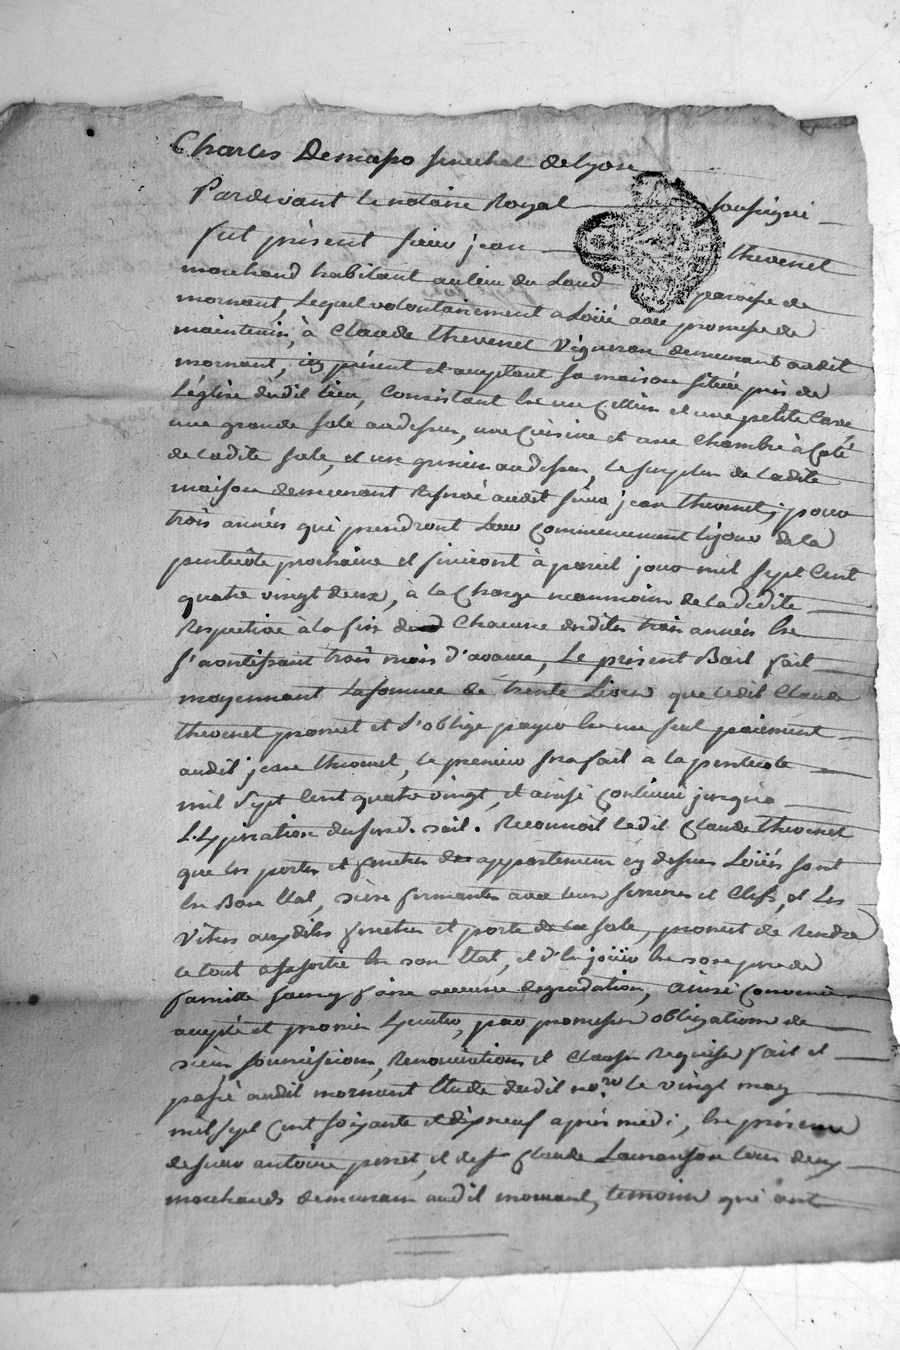 Charles Demaso senechal de lyon
Pardevant le notaire Royal soussigné
fut présent sieur jean thevenet
marchand habitant au lieu du paroisse de
mornant, Lequel volontairement a Loüé avec promesse de
maintenir, à Claude thevenet Vigneron demeurant audit
mornant, icy présent et acceptant sa maison située près de
L'église dudit lieu, Consistant En un Cellier et une petite Cave
une grande sale audessus, une Cuisine et une Chambre à Coté
de Ladite sale, et un grenier audessus, Le surplus de Ladite
maison demeurant Reservé audit sieur jean thevenet; pour
trois années qui prendront Leur Commencement Lejour de la
pentecôte prochaine et finiront à pareil jour mil sept Cent
quatre vingt deux, à la Charge neanmoins de La dedite
Respective à la fin de Chacune desdites trois années En
s'avertissant trois mois d'avance, Le présent Bail fait
moyennant La somme de trente Livres que ledit Claude
thevenet promet et s'oblige payer En un seul paiement
audit jean thevenet, le premier sera fait à la pentecote
mil sept Cent quatre vingt, et ainsi Continué jusqu'a
L'Expiration du Bail. Reconnoit ledit Claude thevenet
que les portes et fenetres des appartements cy dessus Loüés sont
En Bon Etat, fermantes avec leurs serrures et Clefs, et Les
Vitres auxdites fenetres et porte de La sale, promet de Rendre
le tout assortie En son Etat, et d'En joüir En bon pere de
famille sans y faire aucune degradation, Ainsi Convenu
accepté et promis Executer, par promesses obligations de
soumissions, Renonciations et Clauses Requises fait et
passé audit mornant Etude dudit no.re le vingt may
mil sept Cent soixante et dix neuf après midi, En présence
de sieur antoine et de sr Claude tous deux
marchands demeurans audit mornant, temoins qui ont